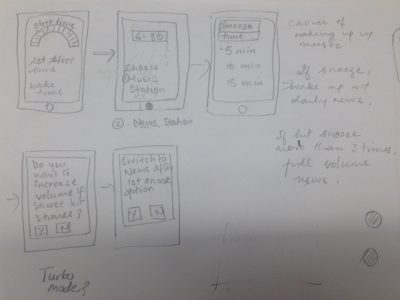 Sleep time
Set Sleep
time
Wake
time
6:30
Choose
① Music
Station
② - News Station
Snooze
time
5 min
10 min
15 min
Choice of
waking up w/
music
If snooze,
wake up w/
daily news.
If hit snooze
more than 3 times,
full volume
news.
Do you
want to
increase
volume if
Snooze hit
3 times?
Y N
Switch to
News after
1st snooze
option
Y N
Turbo
mode?